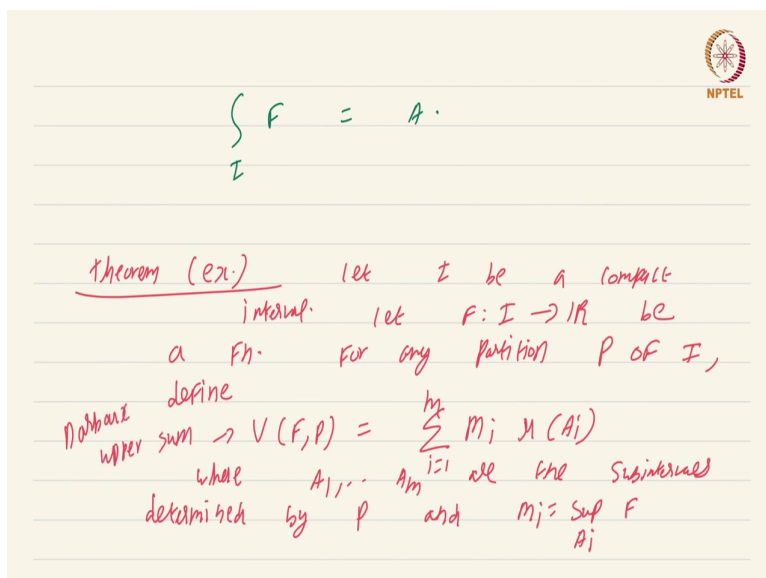 NPTEL
∫ F = A.
I
theorem (ex.) let I be a compact
interval. let F: I → IR be
a Fn. For any partition P of I,
define
Darboux upper sum → U(F,P) = m Σ i=1 Mi μ(Ai)
where A1,.. Am are the subintervals
determined by P and Mi = sup F
Ai